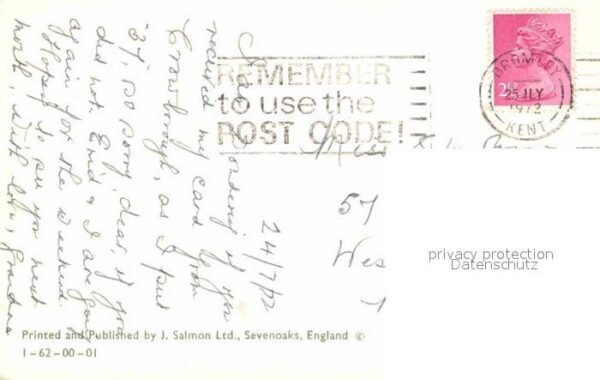 24/7/72
wondering if you
received my card from
Crowborough, as I put
"37", so sorry, dear, if you
did not. Enid & I are going
again for the weekend.
Hoping to see you next
month, with love, Grandma
REMEMBER
to use the
POST CODE!
BROMLEY
25 JLY
1972
KENT
2½
Miss
57
Wes
privacy protection
Datenschutz
Printed and Published by J. Salmon Ltd., Sevenoaks, England ©
1-62-00-01